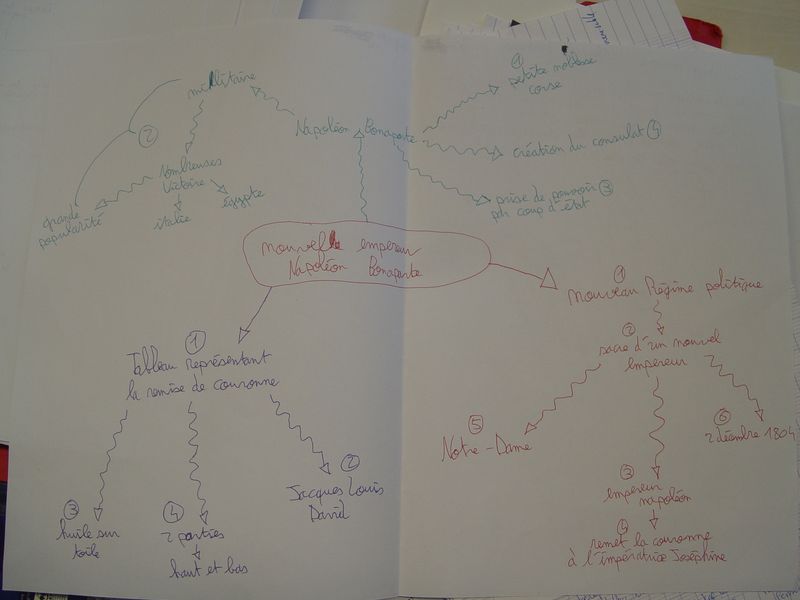 militaire
① petite noblesse
corse
Napoléon Bonaparte
②
création du consulat ④
nombreuses
victoire
égypte
italie
grande
popularité
prise de pouvoir ③
par coup d'état
nouvel empereur
Napoléon Bonaparte
①
nouveau Régime politique
①
Tableau représentant
la remise de couronne
②
sacre d'un nouvel
Empereur
⑤
Notre-Dame
⑥
2 décembre 1804
②
Jacques Louis
David
③
huile sur
toile
④
2 parties
haut et bas
③
empereur
napoléon
④
remet la couronne
à l'impératrice Joséphine